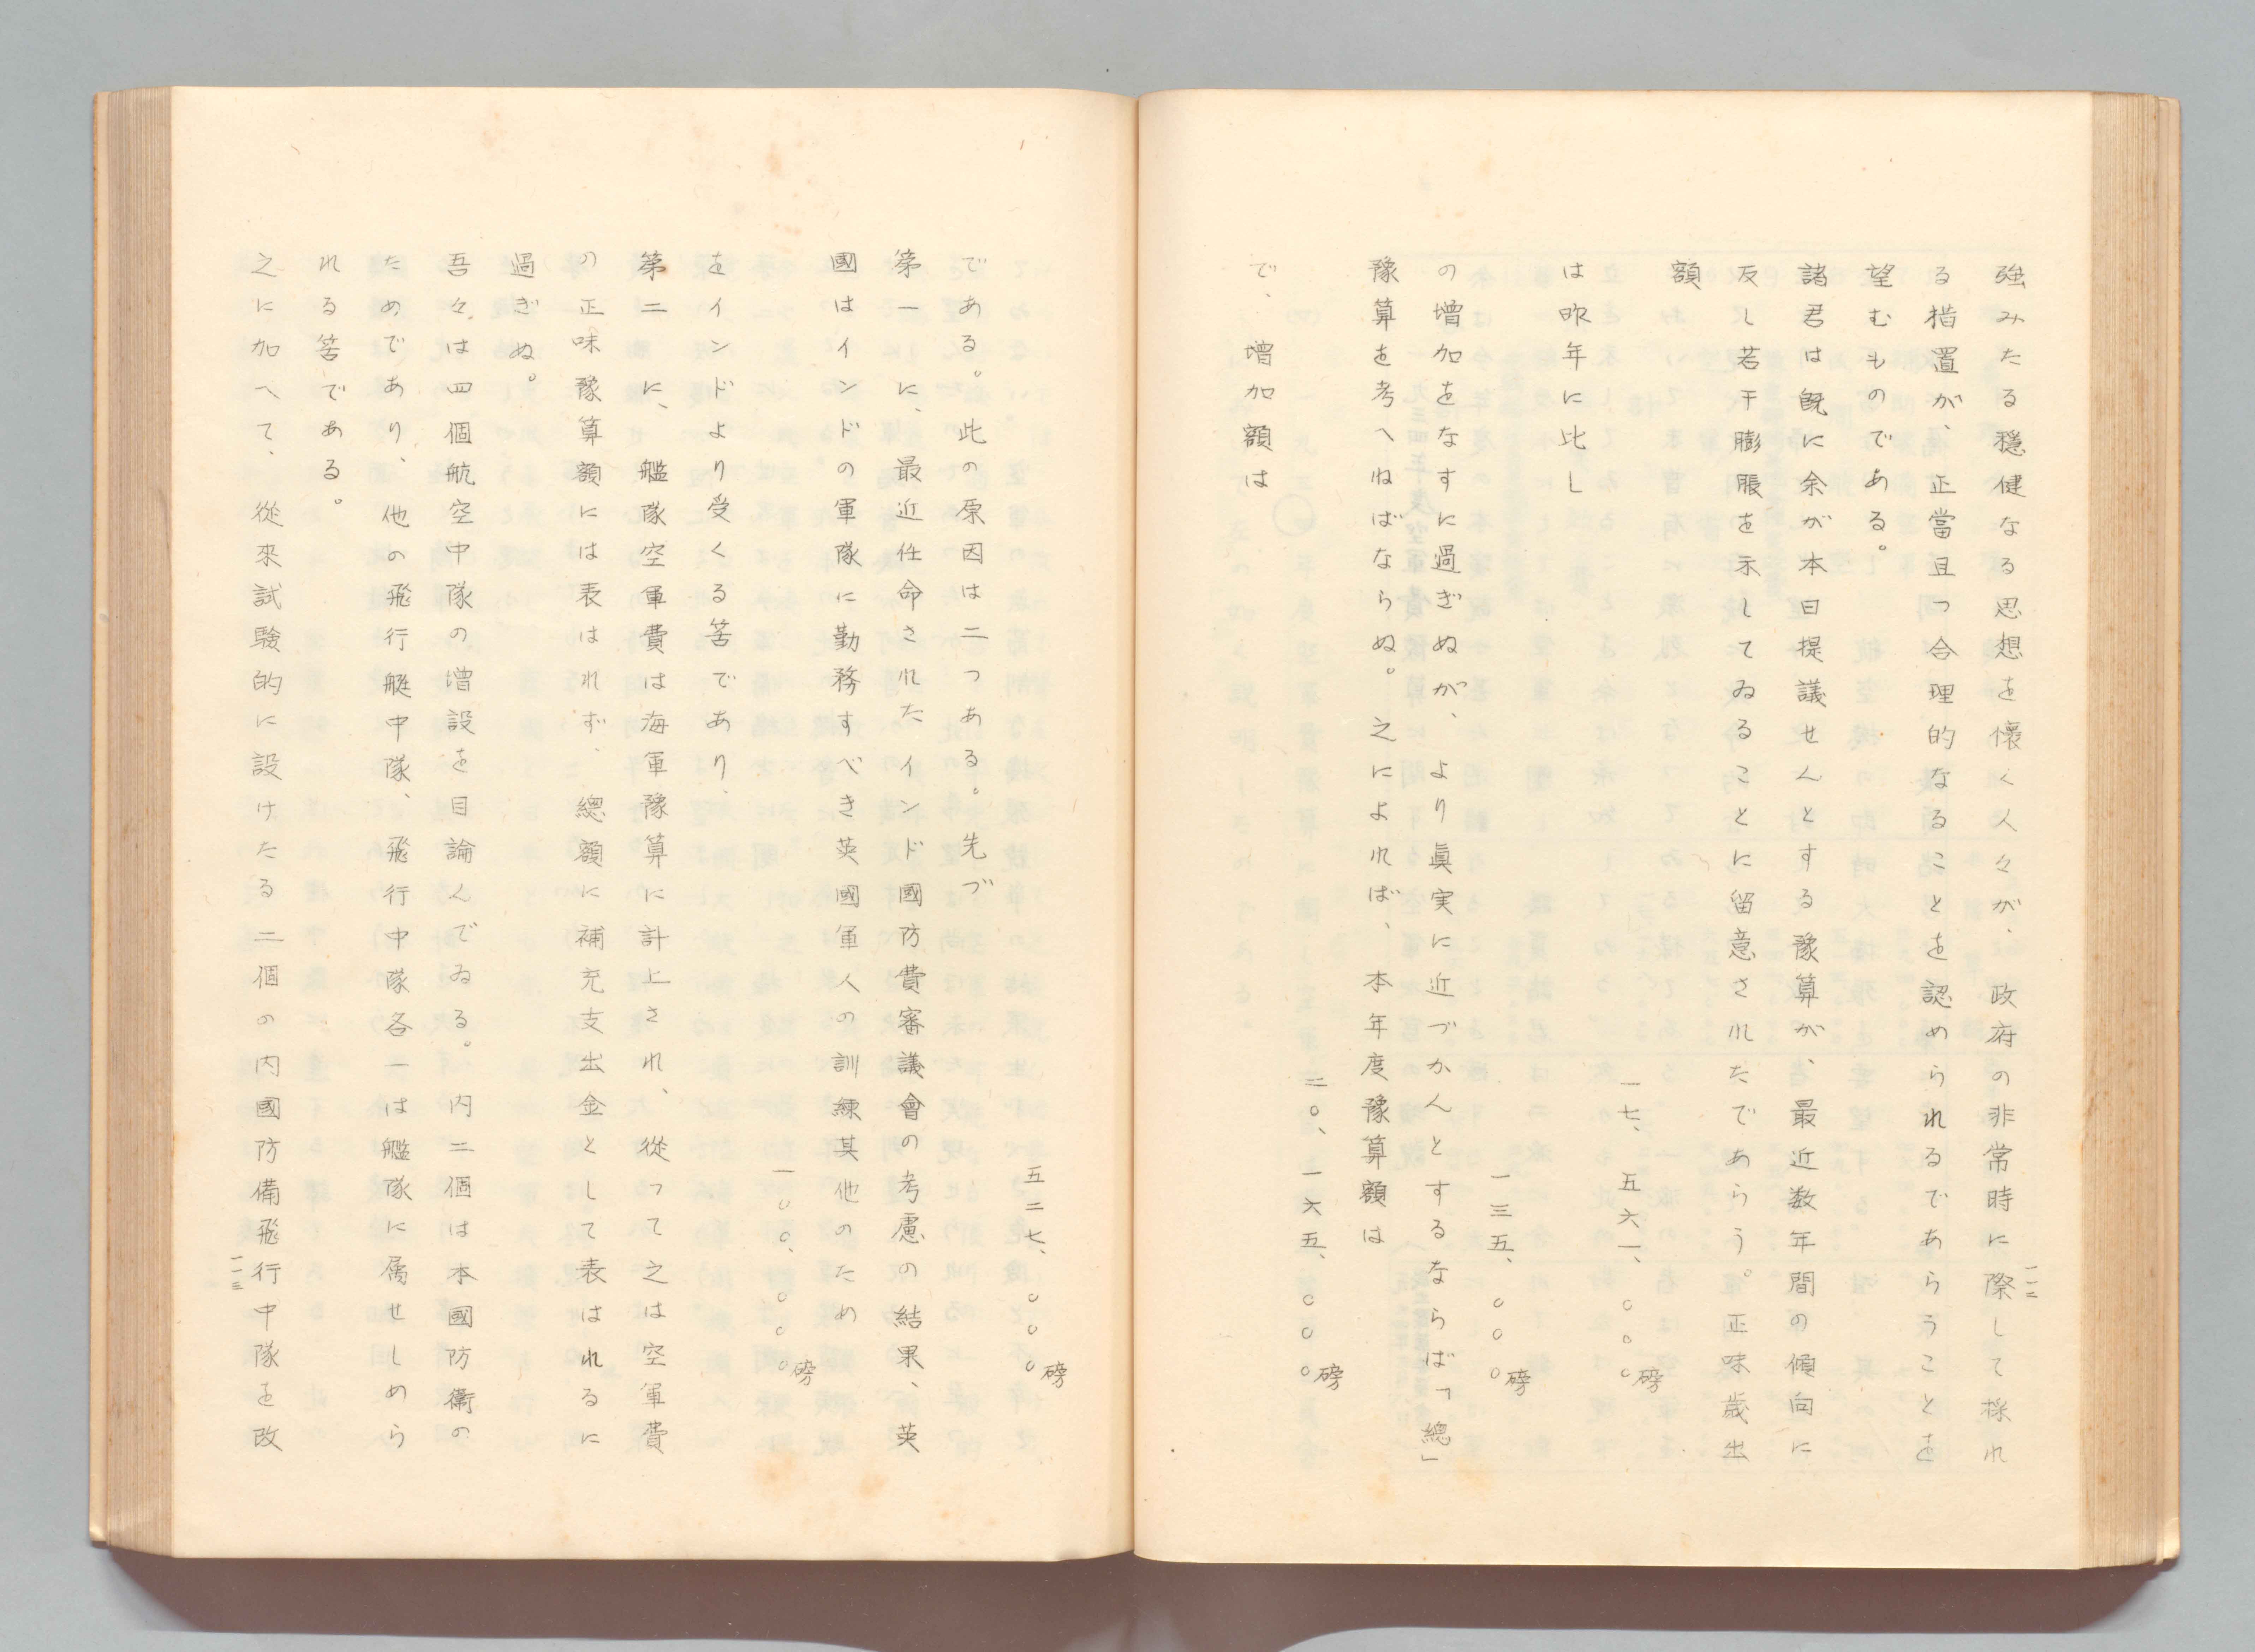 一一二
強みたる穩健なる思想を懷く人々が、政府の非常時に際して採れ
る措置が、正當且つ合理的なることを認められるであらうことを
望むものである。
諸君は既に余が本日提議せんとする豫算が、最近数年間の傾向に
反し若干膨脹を示してゐることに留意されたであらう。正味歳出
額
一七、五六一、〇〇〇磅
は昨年に比し
一三五、〇〇〇磅
の増加をなすに過ぎぬが、より眞実に近づかんとするならば「總」
豫算を考へねばならぬ。之によれば、本年度豫算額は
二〇、一六五、〇〇〇磅
で、増加額は
五二七、〇〇〇磅
である。此の原因は二つある。先づ
第一に、最近任命されたインド國防費審議會の考慮の結果、英
國はインドの軍隊に勤務すべき英國軍人の訓練其他のため
一〇〇、〇〇〇磅
をインドより受くる筈であり、
第二に、艦隊空軍費は海軍豫算に計上され、從つて之は空軍費
の正味豫算額には表はれず、總額に補充支出金として表はれるに
過ぎぬ。
吾々は四個航空中隊の増設を目論んでゐる。内二個は本國防衞の
ためであり、他の飛行艇中隊、飛行中隊各一は艦隊に属せしめら
れる筈である。
之に加へて、從來試験的に設けたる二個の内國防備飛行中隊を改
一一三